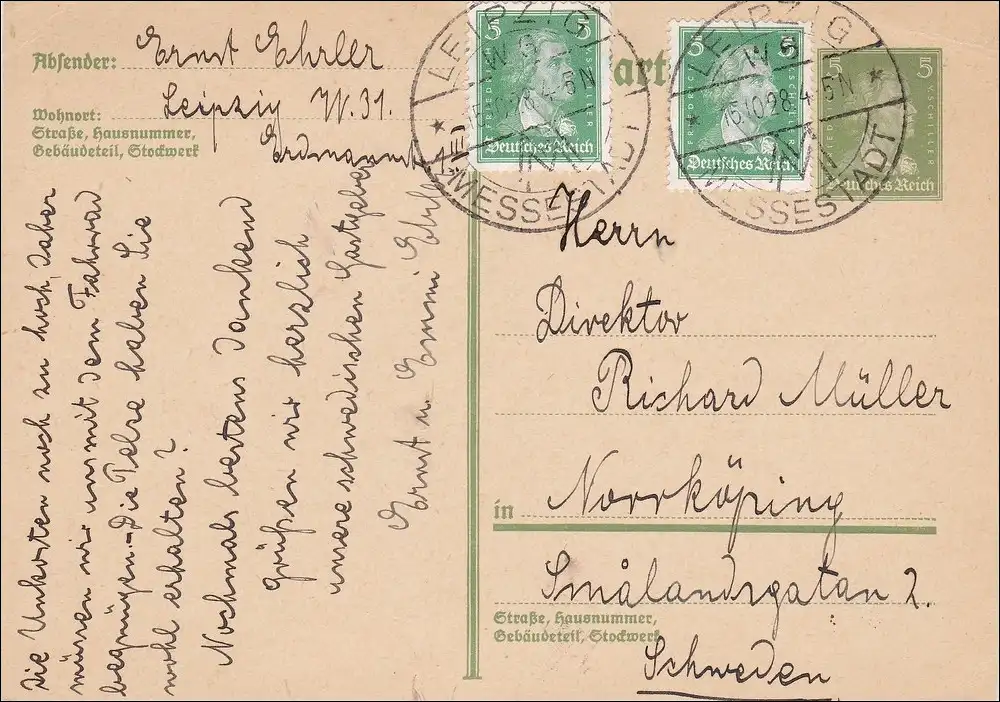 Absender: Ernst Ehrler
Wohnort: Leipzig W. 31.
Straße, Hausnummer,
Gebäudeteil, Stockwerk
Die Unkosten noch zu hoch, daher
müssen wir uns mit dem Fahrrad
begnügen. – Die Pelze haben Sie
wohl erhalten?
Nochmals bestens dankend
grüßen wir herzlich
unsere schwedischen Gastgeber
Ernst u. Emmi Ehrler
5 5
FRIEDRICH V. SCHILLER
Deutsches Reich
LEIPZIG
W.G.
4-5N
MESSESTADT
5 5
FRIEDRICH V. SCHILLER
Deutsches Reich
LEIPZIG
W.G.
15.10.28. 4-5N
MESSESTADT
5 5
V. SCHILLER
Deutsches Reich
Herrn
Direktor
Richard Müller
in Norrköping
Smålandsgatan 2.
Straße, Hausnummer,
Gebäudeteil, Stockwerk
Schweden